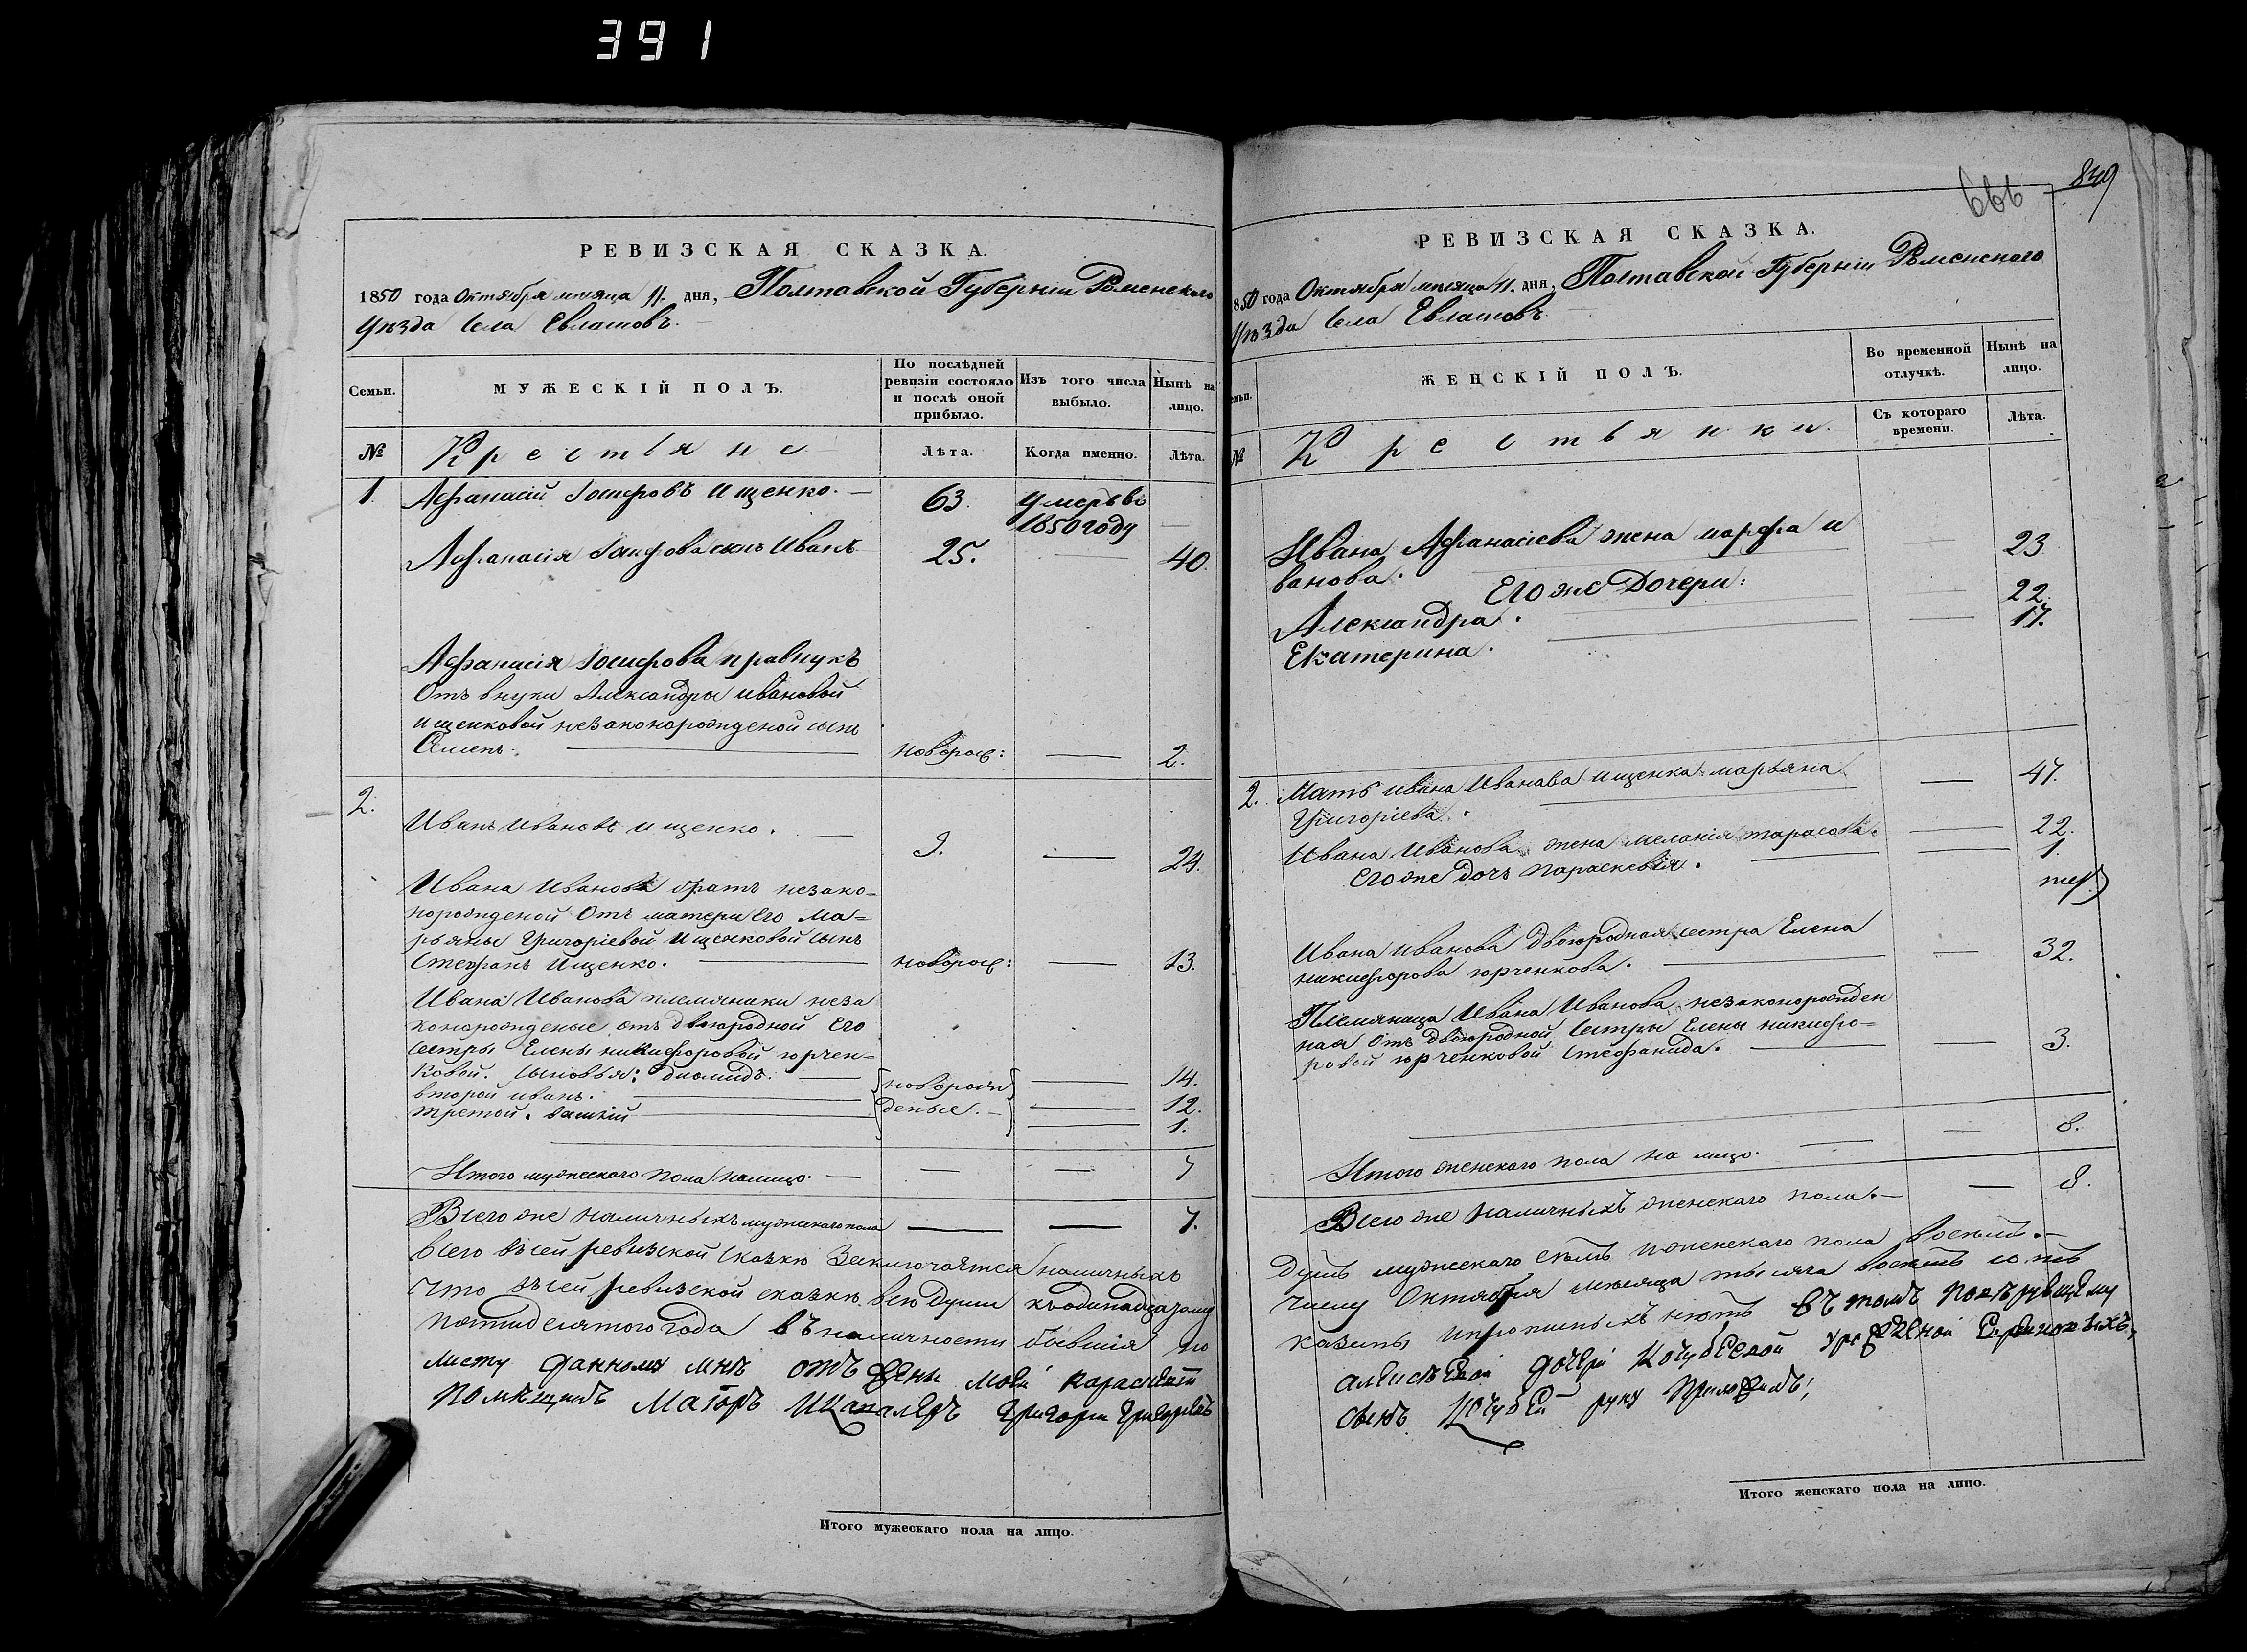 391
РЕВИЗСКАЯ СКАЗКА.
1850 года Октября месяца 11. дня, Полтавской Губернiи Роменского
Уѣзда Села Евлашовъ.
Семьи.
МУЖЕСКIЙ ПОЛЪ.
По послѣдней
ревизiи состояло
и послѣ оной
прибыло.
Изъ того числа
выбыло.
Нынѣ на
лицо.
№
Крестьяне
Лѣта.
Когда именно.
Лѣта.
1. Афанасiй Iосифовъ Ищенко. — 63. Умеръ въ
1850 году —
Афанасiя Iосифова сынъ Иванъ. 25. — 40.
Афанасiя Iосифова правнукъ
Отъ внуки Александры Ивановой
ищенковой незаконорожденой сынъ
Семенъ. — новорож: — 2.
2.
Иванъ Ивановъ Ищенко. — 9. — 24.
Ивана Иванова братъ незако-
норожденой Отъ матери Его Ма=
рьяны Григорiевой Ищенковой сынъ
Стефанъ Ищенко. — новорож: — 13.
Ивана Иванова племяники неза
конорожденые отъ двоюродной Его
сестры Елены никифоровой юрчен=
ковой. Сыновья: Диомидъ. — новорож — 14.
второй иванъ. — деные. — 12.
третой. — 1.
Итого мужескаго пола налицо. — — — 7
Всего же наличныхъ мужескаго пола — — 7.
Всего въ сей ревизской сказке Заключается наличныхъ
Что въ сей ревизской сказке все души къ одинадцатому
пятидесятого года въ наличности бывшiя по
листу данному мне отъ жены моей
Помѣщикъ Маiоръ И Кавалеръ Григори Григорiевъ
Итого мужескаго пола на лицо.
666
849
РЕВИЗСКАЯ СКАЗКА.
1850 года Октября месяца 11. дня, Полтавской Губернiи Роменского
Уѣзда Села Евлашовъ.
Семьи.
ЖЕНСКIЙ ПОЛЪ.
Во временной
отлучкѣ.
Нынѣ на
лицо.
№
Крестьянки.
Съ котораго
времени.
Лѣта.
Ивана Афанасiева жена марфа и 23
ванова.
Его же Дочери:
Александра. — 22.
Екатерина. — 17.
2. Мать ивана Иванава ищенка марьяна — 47.
Григорiева.
Ивана Иванова жена меланiя тарасова. — 22.
Его же дочь параскевiя. — 1.
Ивана Иванова двоюродная сестра Елена
никифорова юрченкова. — 32.
Племяница Ивана Иванова незаконорожден
ная Отъ двоюродной Сестры Елены никифо=
ровой юрченковой Стефанида. — 3.
8.
Итого женскаго пола на лицо. —
Всего же наличныхъ женскаго пола. — 8.
Душъ мужескаго семь и женскаго пола восемь. —
Числу Октября месяца тысяча восемь сотъ
казаны и нетъ Въ томъ
дочери Кочубеевой
Кочубей руку приложилъ!
Итого женскаго пола на лицо.